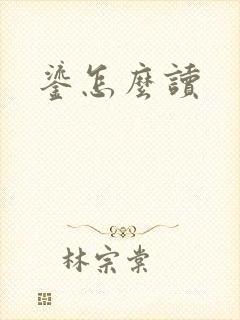 鎏怎麼讀
林宗棠